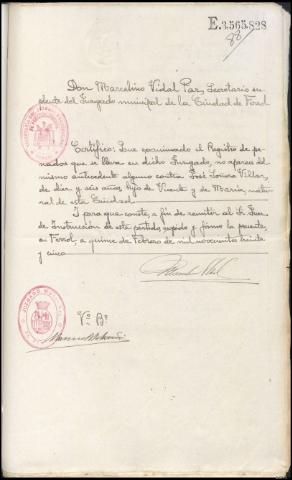 E.3.565.828
88
Don Marcelino Vidal Paz, Secretario su
plente del Juzgado municipal de la Ciudad de Ferrol
Certifico: Que examinado el Registro de pe-
nados que se lleva en dicho Juzgado, no aparece del
mismo antecedente alguno contra José Lorenzo Villar,
de diez y seis años, hijo de Vicente y de María, natu-
ral de esta Ciudad.
Y para que conste, a fin de remitir al Sr. Juez
de Instrucción de este partido expido y firmo la presente
en Ferrol, a quince de Febrero de mil novecientos treinta
y cinco
Vº Bº
JUZGADO MUNICIPAL